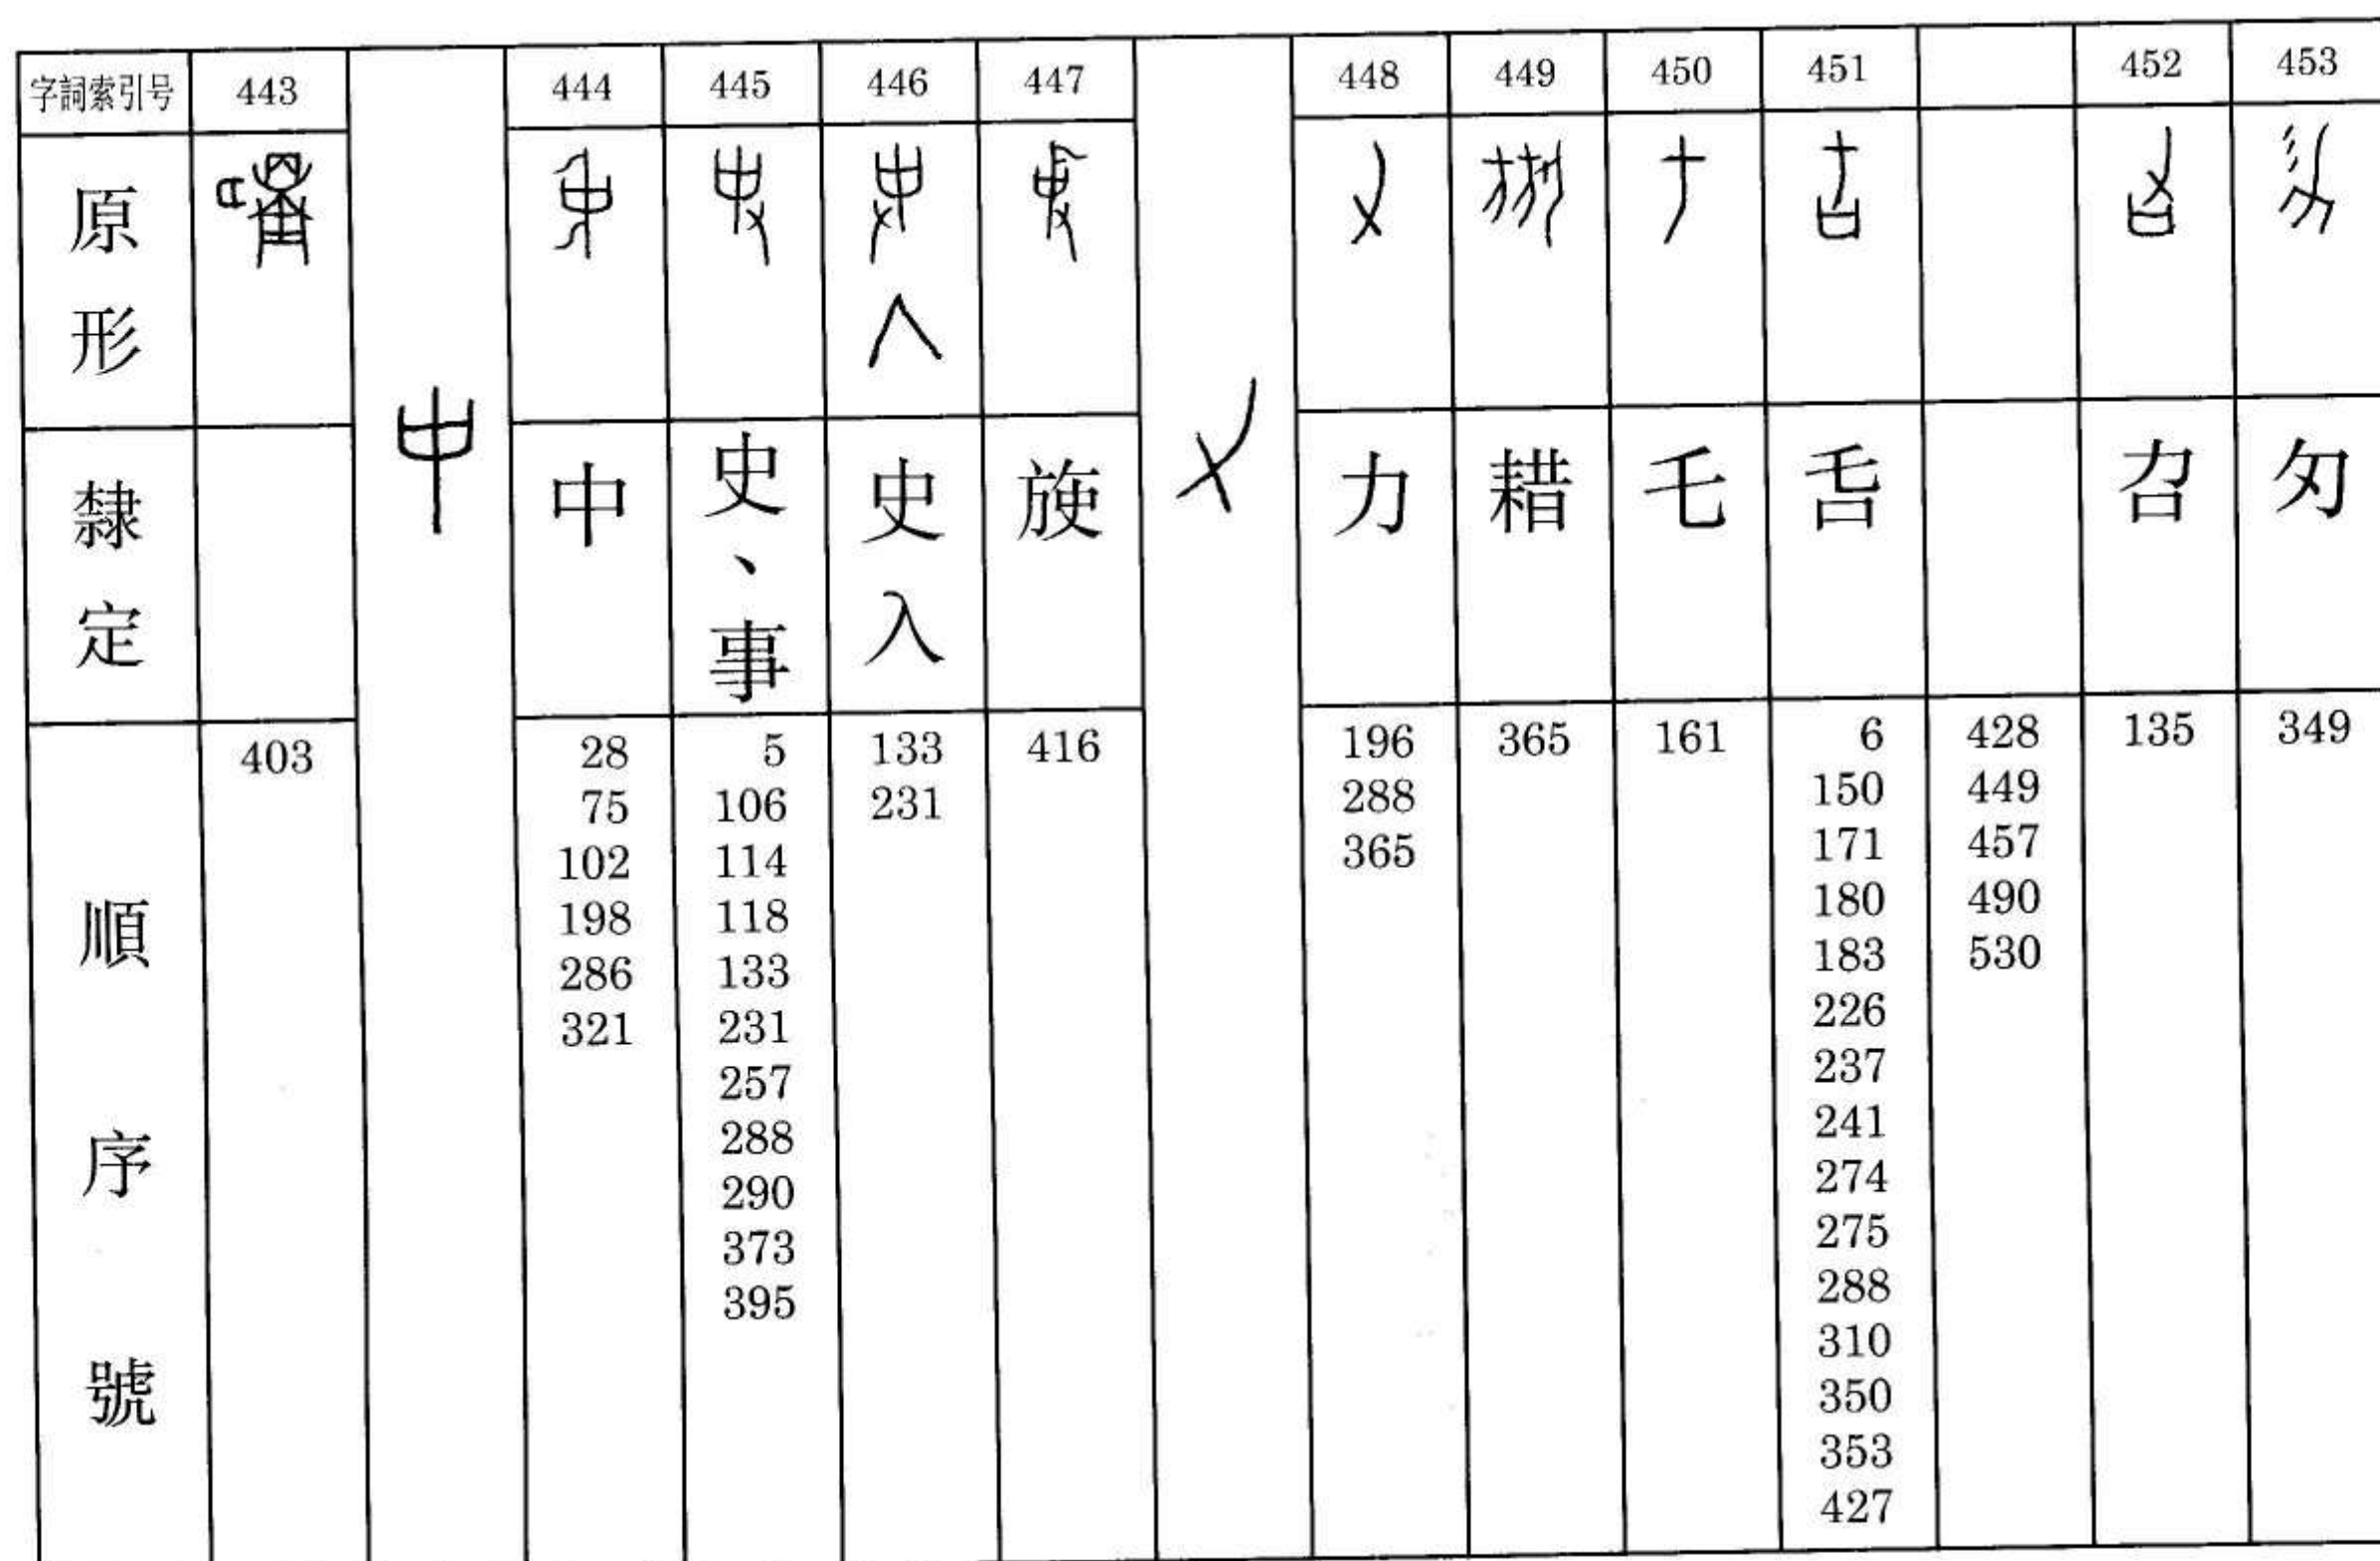 字詞索引号 443 444 445 446 447 448 449 450 451 452 453
原形
隸定 中 史、事 史入 力 耤 乇 舌 召 勿
順序號
403
28 75 102 198 286 321
5 106 114 118 133 231 257 288 290 373 395
133 231
416
196 288 365
365
161
6 150 171 180 183 226 237 241 274 275 288 310 350 353 427
428 449 457 490 530
135
349